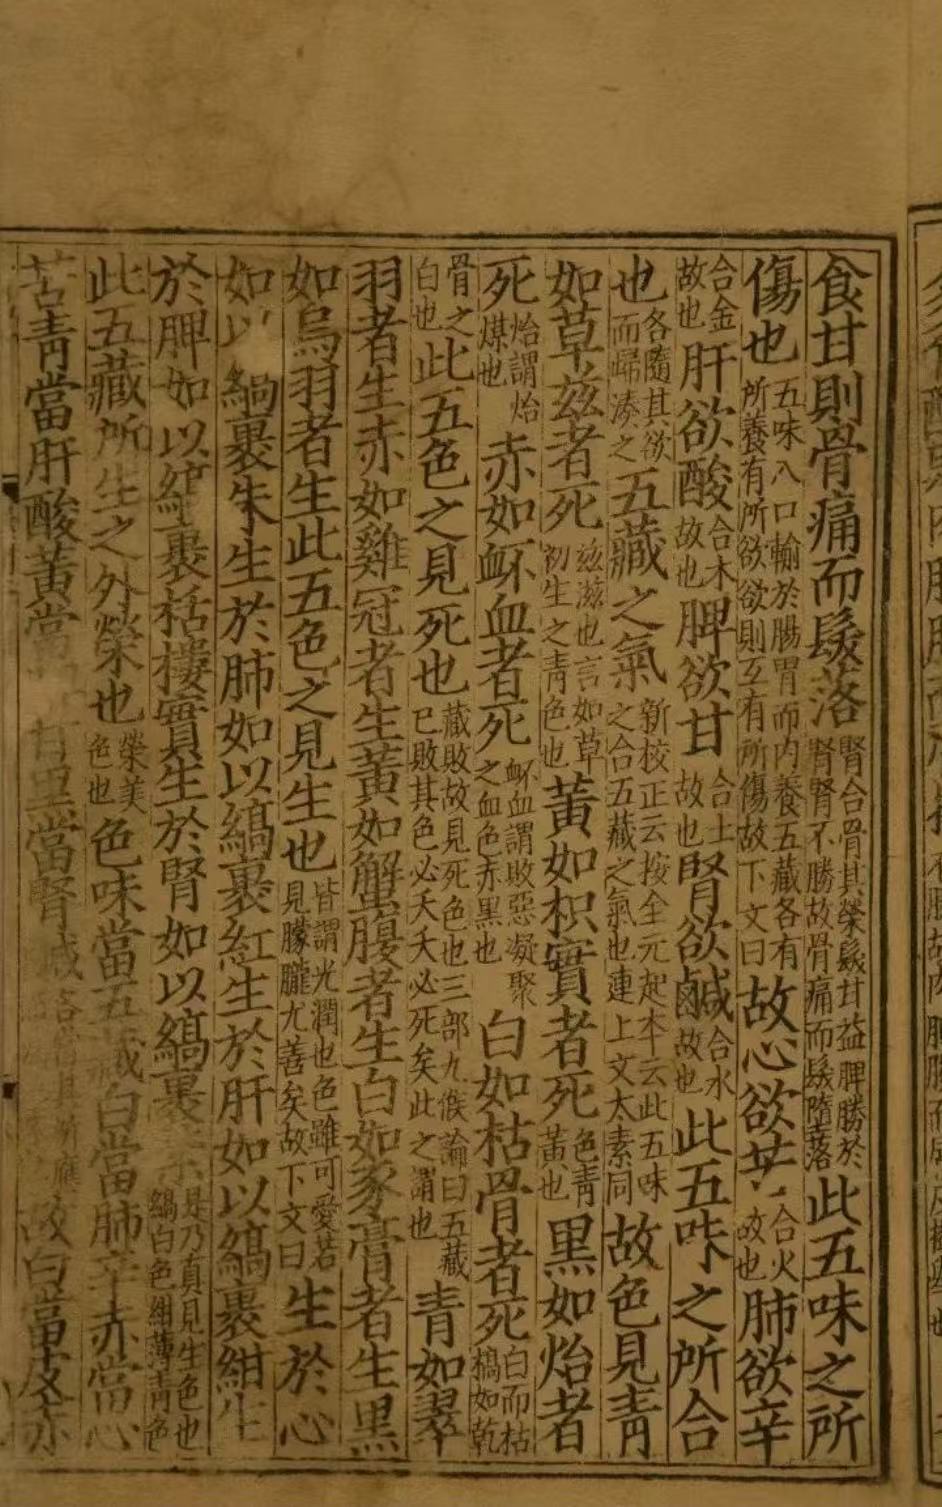 食甘則骨痛而髮落腎合骨其榮髮甘益脾勝於腎腎不勝故骨痛而髮墮落此五味之所
傷也五味入口輸於腸胃而內養五藏各有所養有所欲欲則互有所傷故下文曰故心欲苦合火故也肺欲辛
合金故也肝欲酸合木故也脾欲甘合土故也腎欲鹹合水故也此五味之所合
也各隨其欲而歸湊之五藏之氣新校正云按全元起本云此五味之合五藏之氣也連上文太素同故色見青
如草茲者死茲滋也言如草初生之青色也黃如枳實者死色青黃也黑如炲者
死炲謂炲煤也赤如衃血者死衃血謂敗惡凝聚之血色赤黑也白如枯骨者死白而枯槁如乾
骨之白也此五色之見死也藏敗故見死色也三部九候論曰五藏已敗其色必夭夭必死矣此之謂也青如翠
羽者生赤如雞冠者生黃如蟹腹者生白如豕膏者生黑
如烏羽者生此五色之見生也皆謂光潤也色雖可愛若見朦朧尤善矣故下文曰生於心
如以縞裹朱生於肺如以縞裹紅生於肝如以縞裹紺生
於脾如以縞裹栝樓實生於腎如以縞裹是乃真見生色也縞白色紺薄青色
此五藏所生之外榮也榮美色也色味當五藏白當肺辛赤當心
苦青當肝酸黃當甘黑當腎鹹故白當皮赤